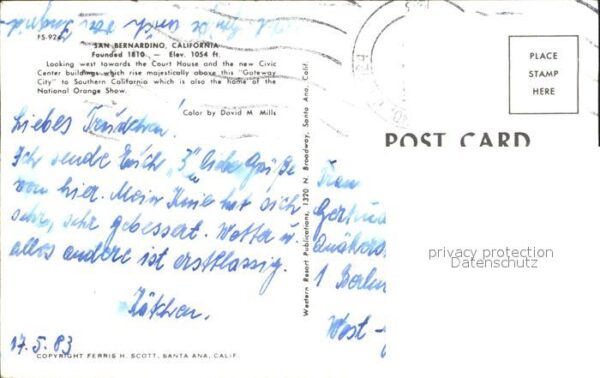 FS-924
SAN BERNARDINO, CALIFORNIA
Founded 1810 — Elev. 1054 ft.
Looking west towards the Court House and the new Civic
Center buildings which rise majestically above this "Gateway
City" to Southern California which is also the home of the
National Orange Show.
Color by David M. Mills
Liebes Trudchen!
Ich sende Euch 3 liebe Grüße
von hier. Mein Knie hat sich
sehr, sehr gebessert. Wetter u.
alles andere ist erstklassig.
Käthen.
17.5.83
COPYRIGHT FERRIS H. SCOTT, SANTA ANA, CALIF.
Western Resort Publications, 1320 N. Broadway, Santa Ana, Calif.
PLACE
STAMP
HERE
POST CARD
Frau
1 Berlin
West-
privacy protection
Datenschutz